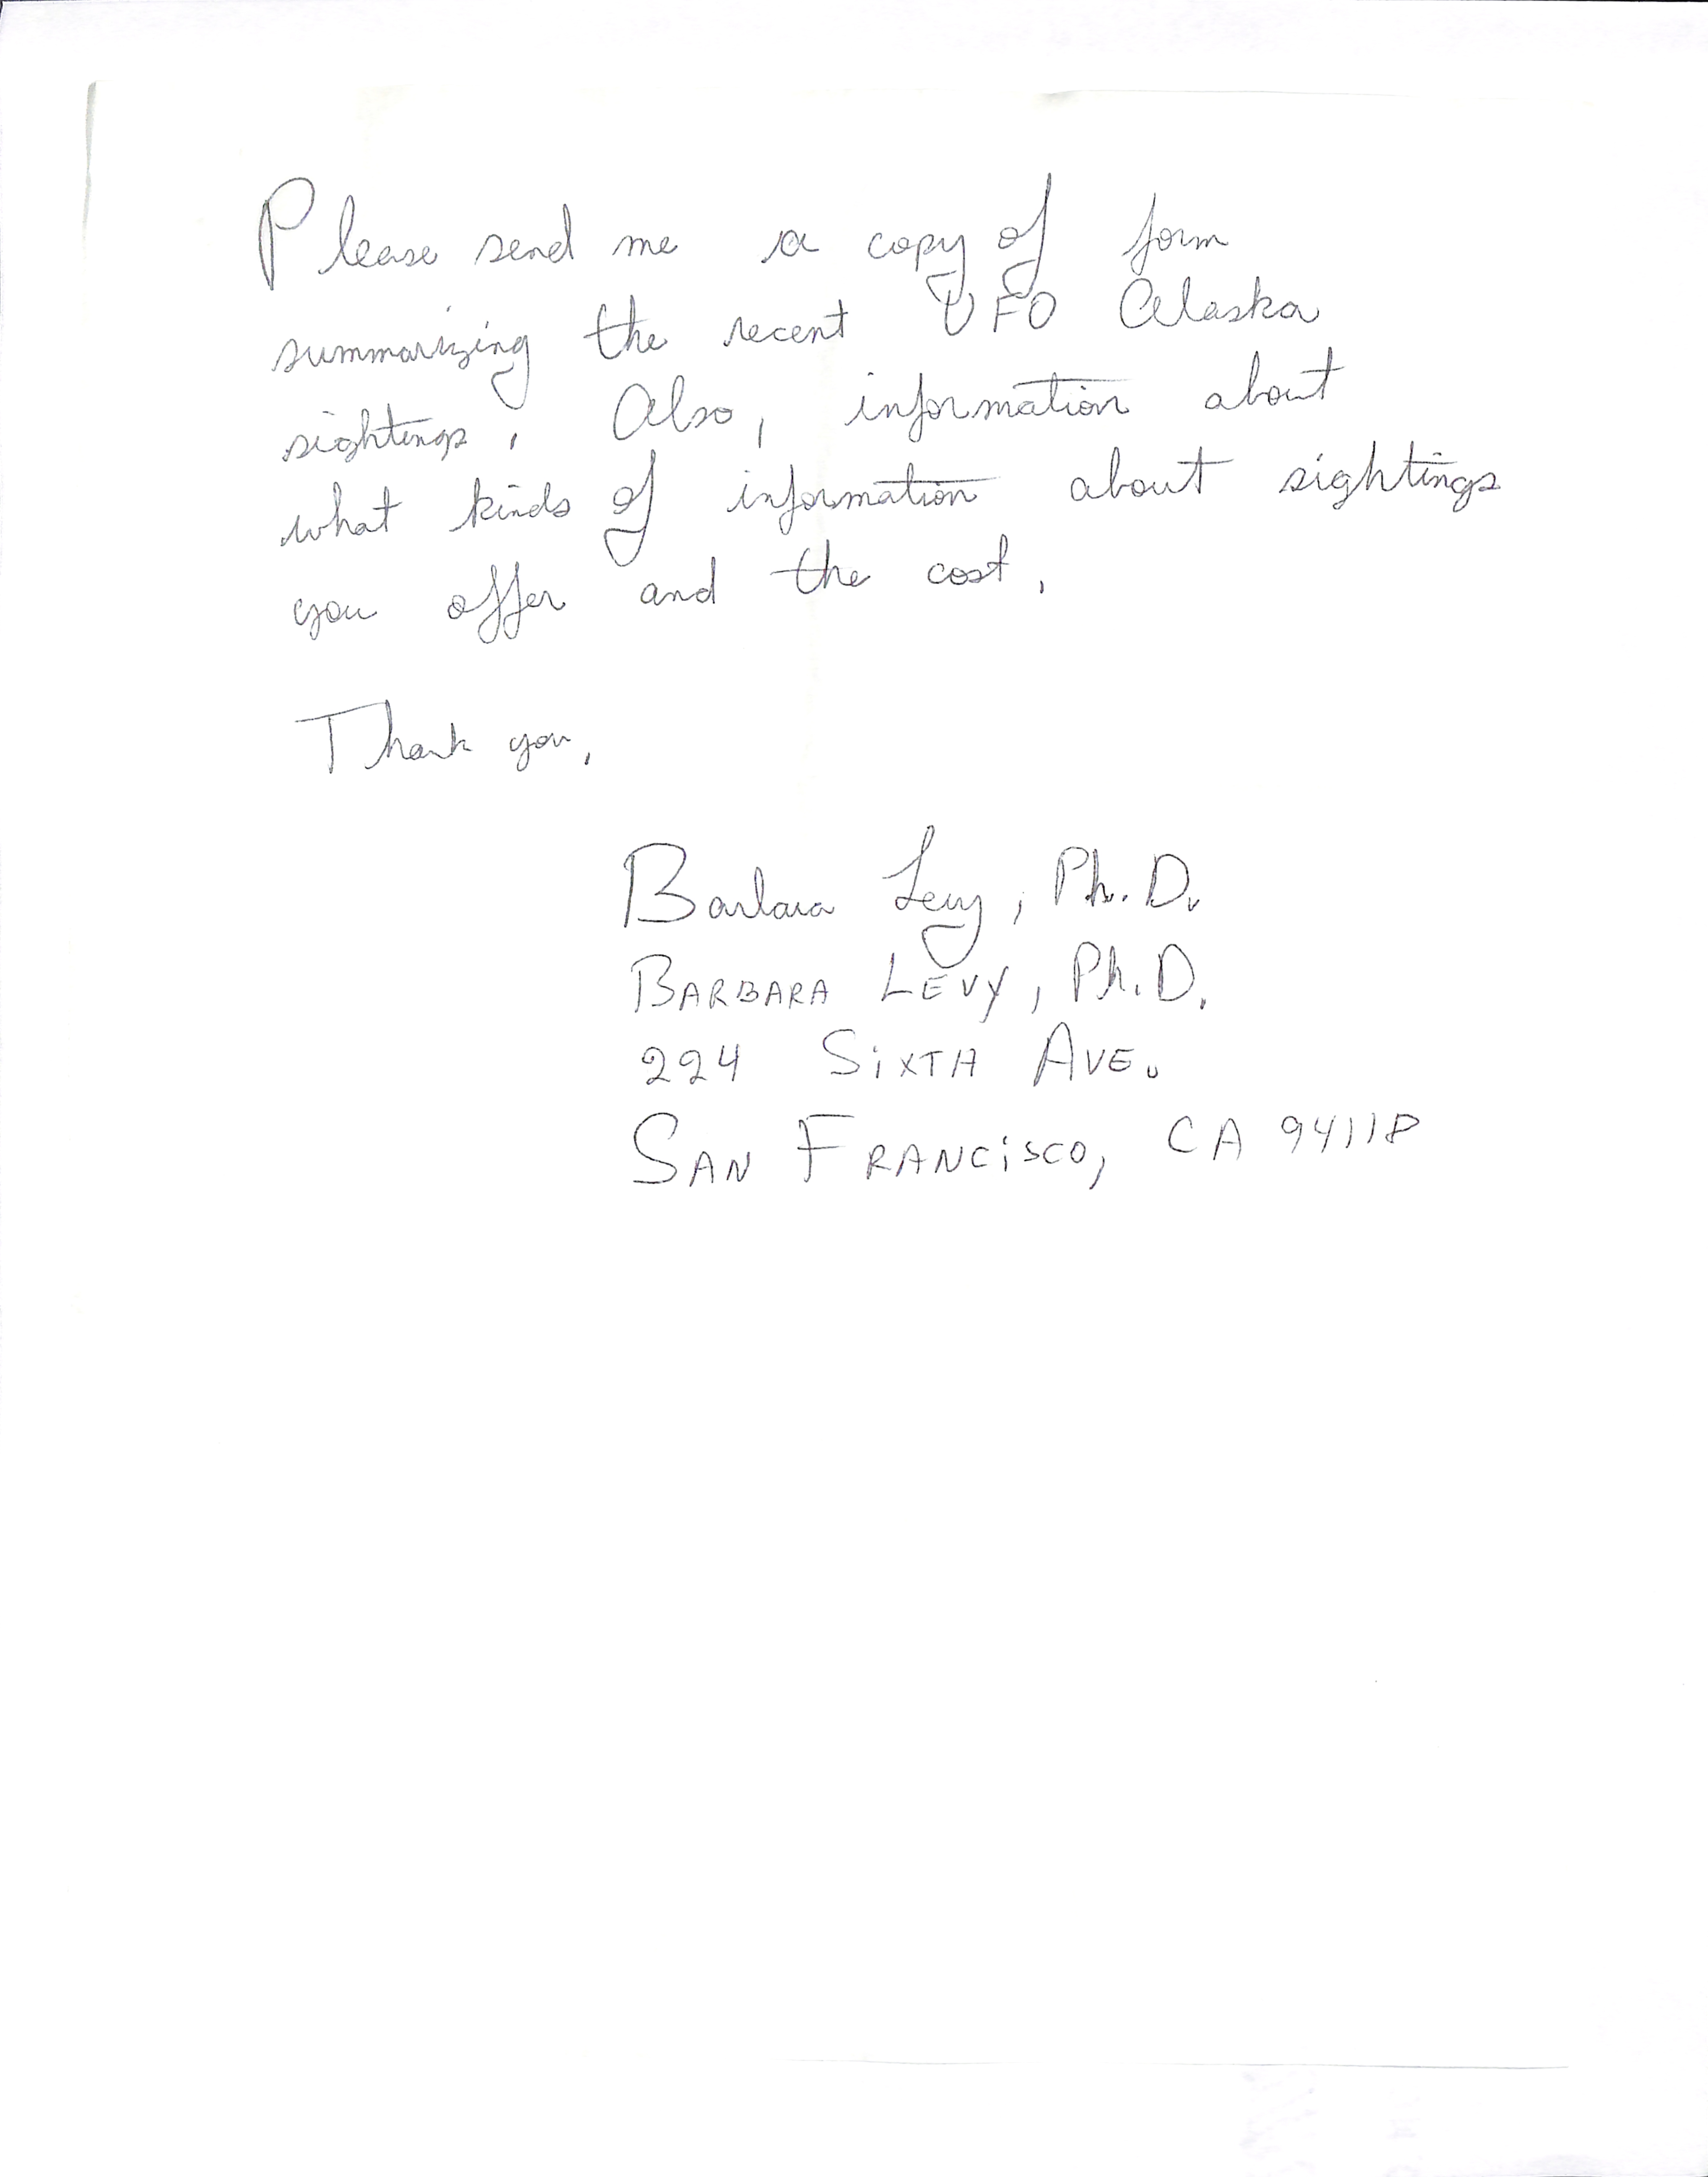 Please send me a copy of form
summarizing the recent UFO Alaska
sightings. Also, information about
what kinds of information about sightings
you offer and the cost.
Thank you,
Barbara Levy, Ph.D.
BARBARA LEVY, Ph.D.
224 SIXTH AVE.
SAN FRANCISCO, CA 94118